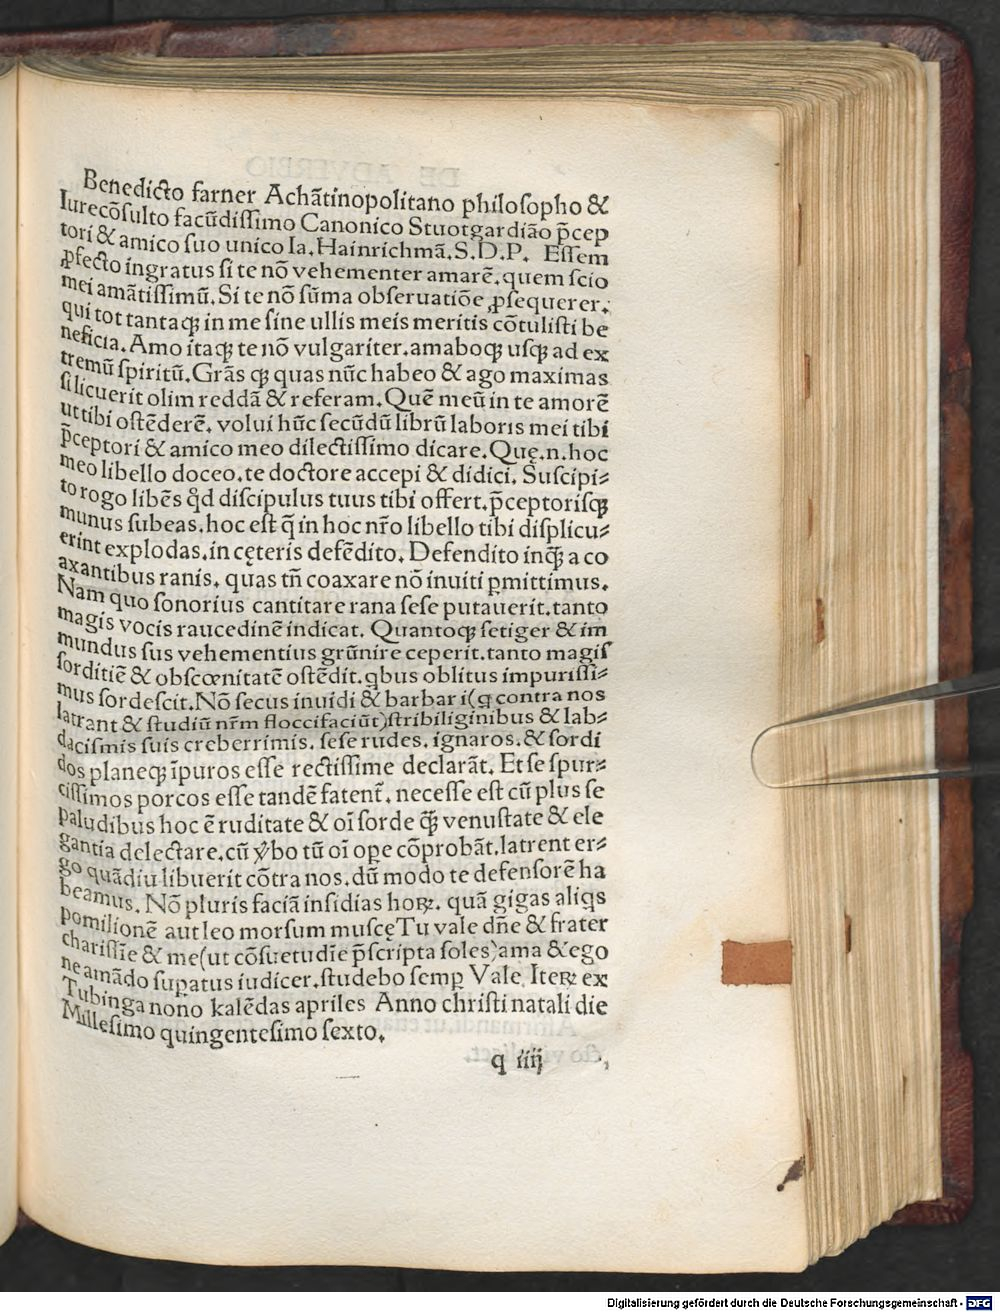 Benedicto farner Achãtinopolitano philoſopho &
Iurecõſulto facũdiſſimo Canonico Stuotgardião p̃cep
tori & amico ſuo unico Ia. Hainrichmã. S. D. P. Eſſem
ꝓfecto ingratus ſi te nõ vehementer amarẽ. quem ſcio
mei amãtiſſimũ. Si te nõ ſũma obſeruatiõe ꝓſequerer.
qui tot tantaqꝫ in me ſine ullis meis meritis cõtuliſti be
neficia. Amo itaqꝫ te nõ vulgariter. amaboqꝫ uſqꝫ ad ex
tremũ ſpiritũ. Grãs qꝫ quas nũc habeo & ago maximas
ſi licuerit olim reddã & referam. Quẽ meũ in te amorẽ
ut tibi oſtẽderẽ. volui hũc ſecũdũ librũ laboris mei tibi
p̃ceptori & amico meo dilectiſſimo dicare. Quę. n. hoc
meo libello doceo. te doctore accepi & didici. Suſcipi⸗
to rogo libẽs q̃d diſcipulus tuus tibi offert. p̃ceptoriſqꝫ
munus ſubeas. hoc eſt q̃ in hoc nr̃o libello tibi diſplicu⸗
erint explodas. in cęteris defẽdito. Defendito inqꝫ̃ a co
axantibus ranis. quas tñ coaxare nõ inuiti ꝑmittimus.
Nam quo ſonorius cantitare rana ſeſe putauerit. tanto
magis vocis raucedinẽ indicat. Quantoqꝫ ſetiger & im
mundus ſus vehementius grũnire ceperit. tanto magiſ
ſorditiẽ & obſcœnitatẽ oſtẽdit. qbus oblitus impuriſſi⸗
mus ſordeſcit. Nõ ſecus inuidi & barbari (q contra nos
latrant & ſtudiũ nr̃m floccifaciũt) ſtribiliginibus & lab⸗
daciſmis ſuis creberrimis. ſeſe rudes. ignaros. & ſordi
dos planeqꝫ ĩpuros eſſe rectiſſime declarãt. Et ſe ſpur⸗
ciſſimos porcos eſſe tandẽ fatent̃. neceſſe eſt cũ plus ſe
paludibus hoc ẽ ruditate & oĩ ſorde qꝫ̃ venuſtate & ele
gantia delectare. cũ v̾bo tũ oĩ ope cõprobãt. latrent er⸗
go quãdiu libuerit cõtra nos. dũ modo te defenſorẽ ha
beamus. Nõ pluris faciã inſidias hoꝝ. quã gigas aliqs
pomilionẽ aut leo morſum muſcę Tu vale dñe & frater
chariſſĩe & me (ut cõſuetudĩe p̃ſcripta ſoles) ama & ego
ne amãdo ſuꝑatus iudicer. ſtudebo ſemꝑ Vale. Iteꝝ ex
Tubinga nono kalẽdas apriles Anno chriſti natali die
Milleſimo quingenteſimo ſexto.
q iiij
Digitalisierung gefördert durch die Deutsche Forschungsgemeinschaft - DFG